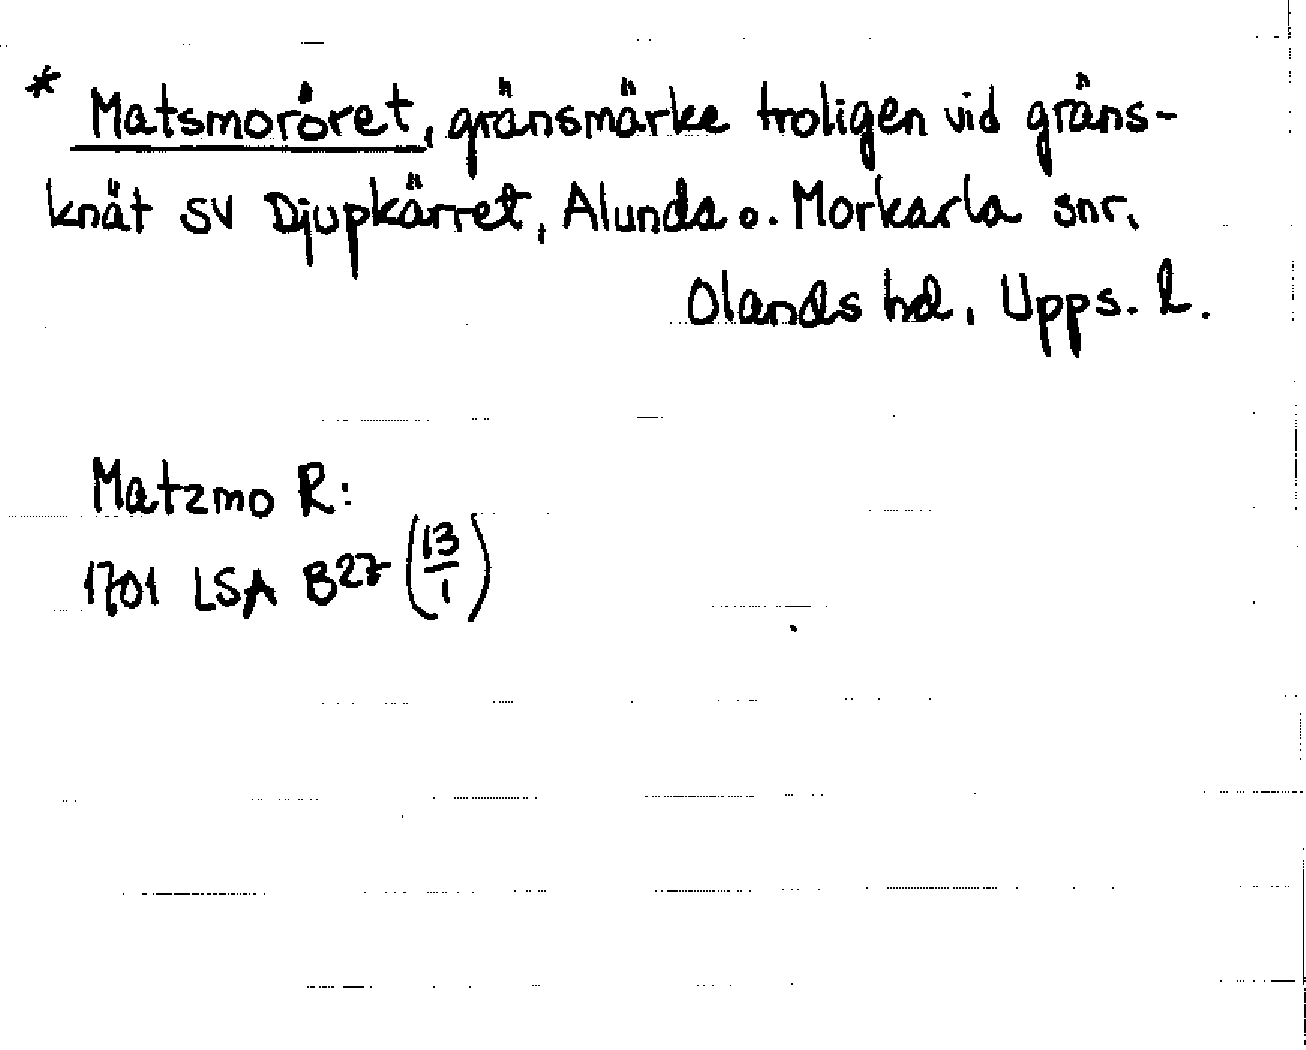 * Matsmoröret, gränsmärke troligen vid gräns-
knät SV Djupkärret, Alunda o. Morkarla snr,
Olands hd, Upps. l.
Matzmo R:
1701 LSA B27 (13/1)